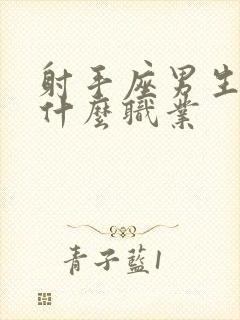 射手座男生
什麼職業
青子藍1